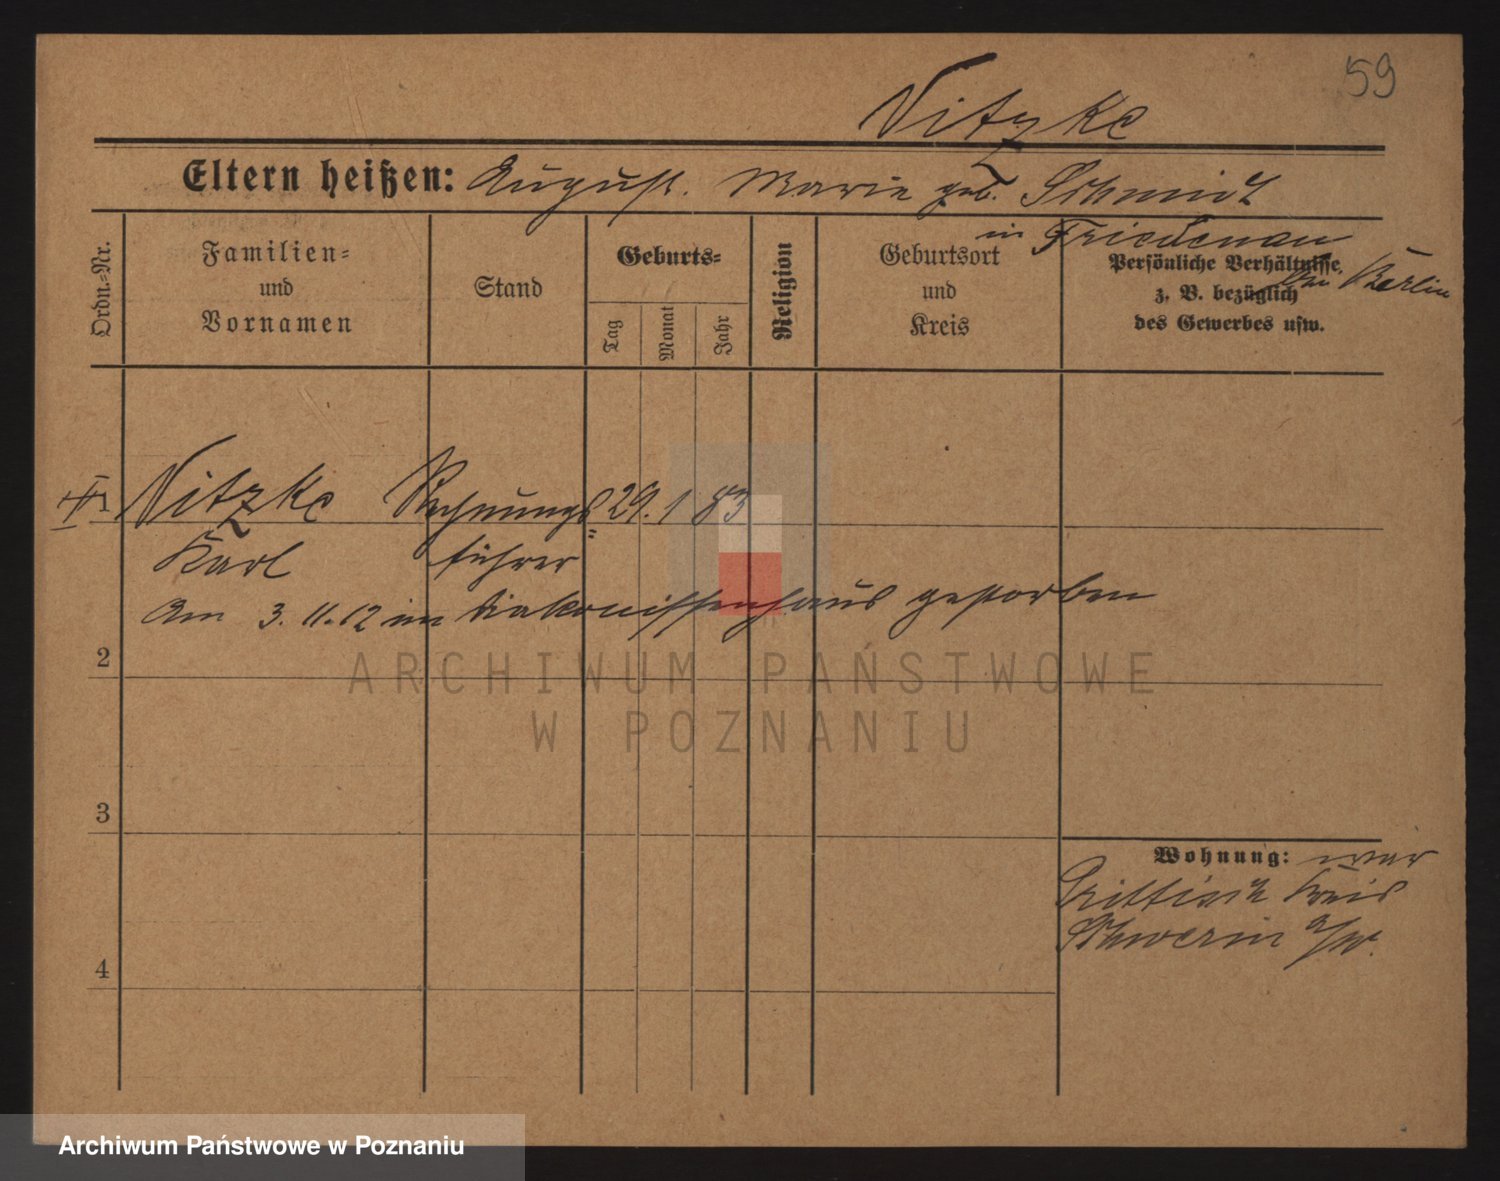 59
Nitzke
Eltern heißen: August. Marie geb. Schmidt
in Friedenau
bei Berlin
Ordn.-Nr.
Familien-
und
Vornamen
Stand
Geburts-
Tag
Monat
Jahr
Religion
Geburtsort
und
Kreis
Persönliche Verhältnisse,
z. B. bezüglich
des Gewerbes usw.
1
Nitzke Rechnungs= 29. 1 83
Karl führer
Am 3. 11. 12 im Diakonissenhaus gestorben
2
3
4
Wohnung: war
Kreis
Schwerin a/W.
ARCHIWUM PAŃSTWOWE
W POZNANIU
Archiwum Państwowe w Poznaniu